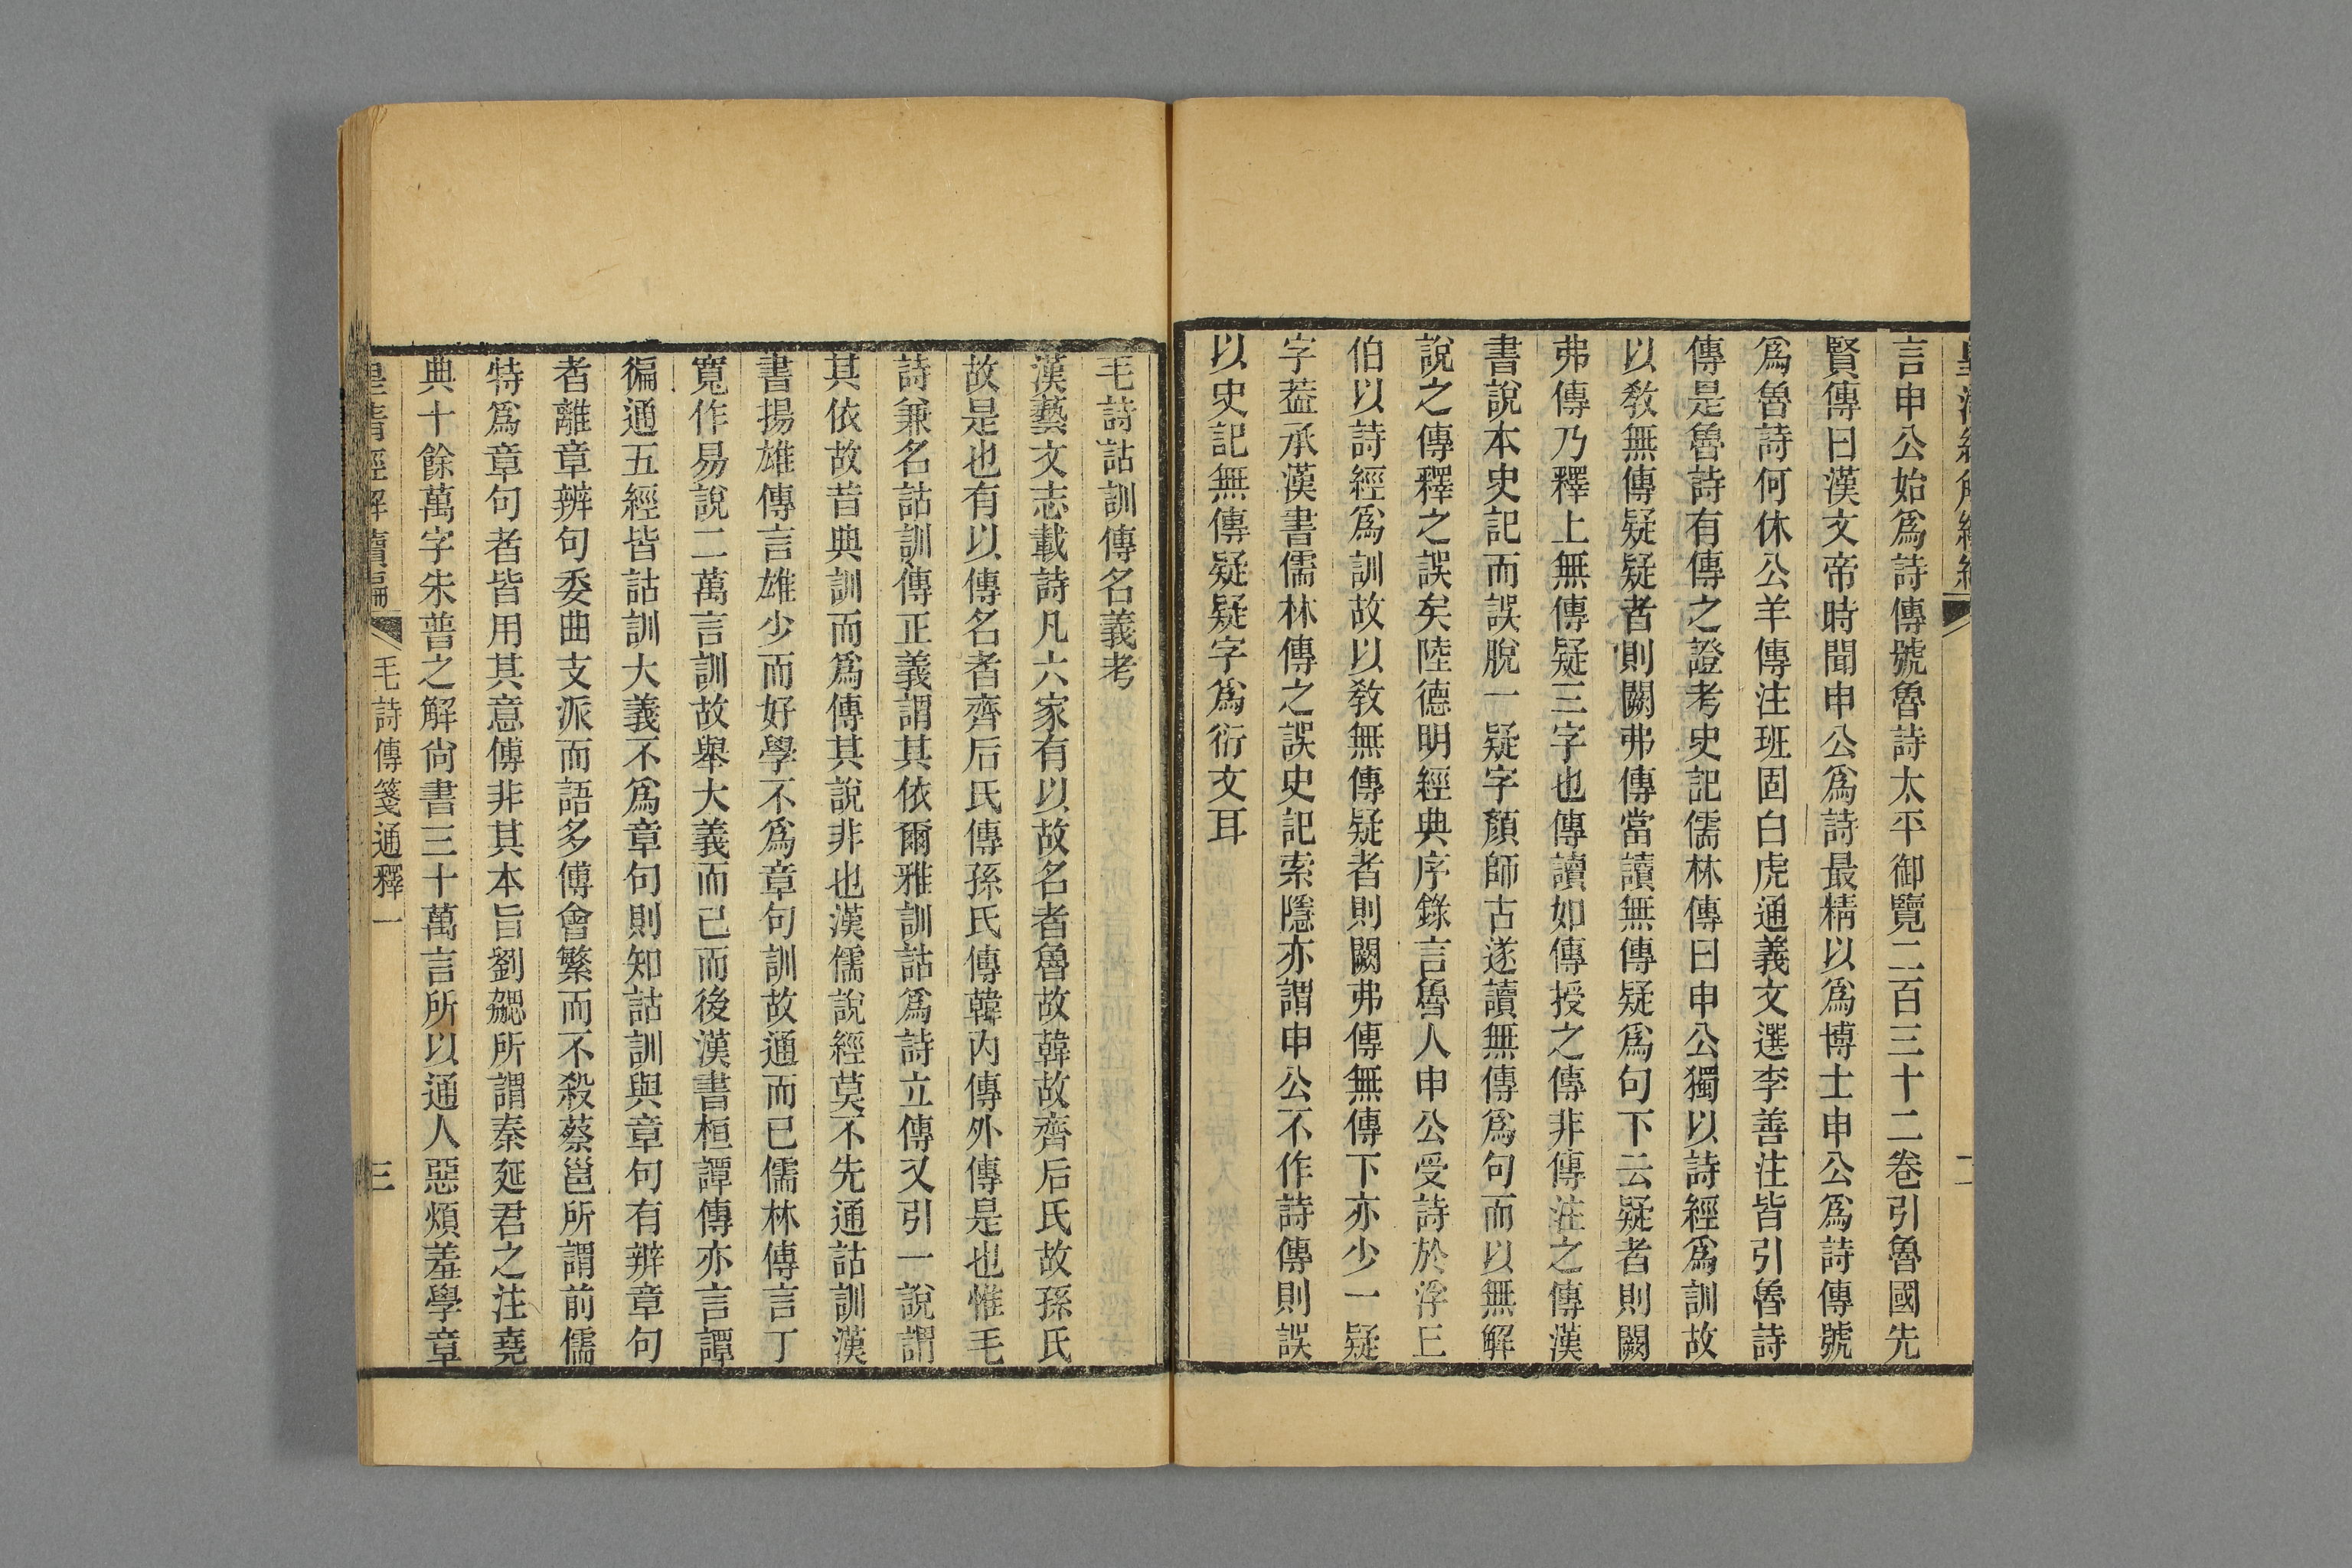 言申公始爲詩傳號魯詩太平御覽二百三十二卷引魯國先
賢傳曰漢文帝時聞申公爲詩最精以爲博士申公爲詩傳號
爲魯詩何休公羊傳注班固白虎通義文選李善注皆引魯詩
傳是魯詩有傳之證考史記儒林傳曰申公獨以詩經爲訓故
以敎無傳疑疑者則闕弗傳當讀無傳疑爲句下云疑者則闕
弗傳乃釋上無傳疑三字也傳讀如傳授之傳非傳注之傳漢
書說本史記而誤脫一疑字顏師古遂讀無傳爲句而以無解
說之傳釋之誤矣陸德明經典序錄言魯人申公受詩於浮丘
伯以詩經爲訓故以敎無傳疑者則闕弗傳無傳下亦少一疑
字葢承漢書儒林傳之誤史記索隱亦謂申公不作詩傳則誤
以史記無傳疑疑字爲衍文耳
毛詩詁訓傳名義考
漢藝文志載詩凡六家有以故名者魯故韓故齊后氏故孫氏
故是也有以傳名者齊后氏傳孫氏傳韓内傳外傳是也惟毛
詩兼名詁訓傳正義謂其依爾雅訓詁爲詩立傳又引一說謂
其依故昔典訓而爲傳其說非也漢儒說經莫不先通詁訓漢
書揚雄傳言雄少而好學不爲章句訓故通而已儒林傳言丁
寬作易說二萬言訓故舉大義而已而後漢書桓譚傳亦言譚
徧通五經皆詁訓大義不爲章句則知詁訓與章句有辨章句
者離章辨句委曲支派而語多傅會繁而不殺蔡邕所謂前儒
特爲章句者皆用其意傳非其本旨劉勰所謂秦延君之注堯
典十餘萬字朱普之解尙書三十萬言所以通人惡煩羞學章
皇清經解續編 毛詩傳箋通釋一 三